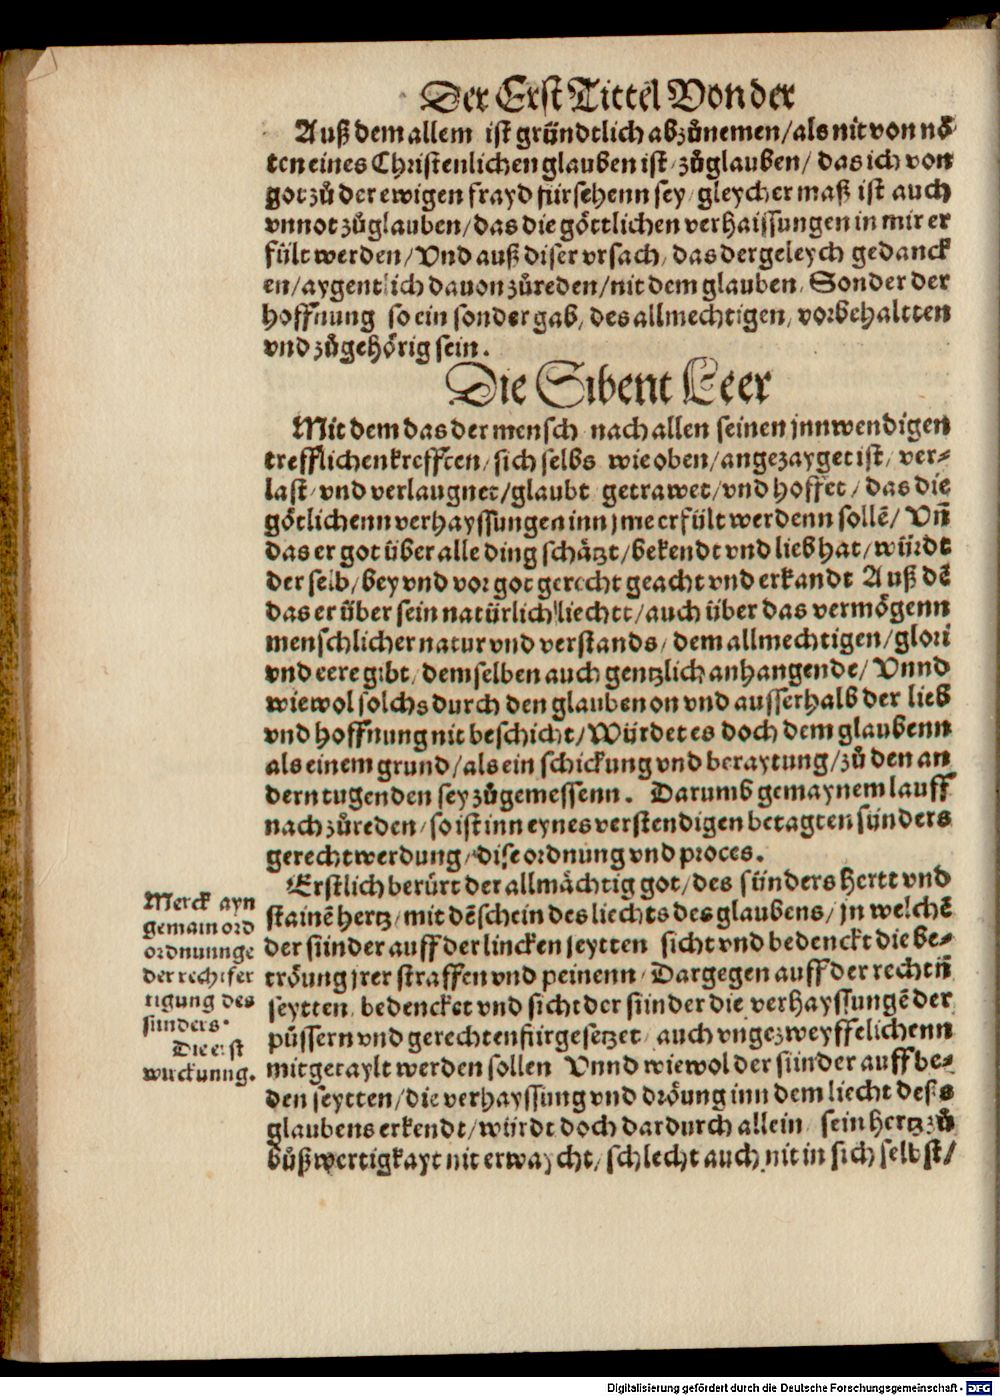 Der Erst Tittel Von der
Auß dem allem ist gründtlich abzůnemen/als nit von nö
ten eines Christenlichen glauben ist/zůglauben/ das ich von
got zů der ewigen frayd fürsehenn sey/gleycher maß ist auch
vnnot zůglauben/das die göttlichen verhaissungen in mir er
fült werden/Vnd auß diser vrsach/das dergeleych gedanck
en/aygentlich dauon zůreden/nit dem glauben/Sonder der
hoffnung so ein sonder gab/des allmechtigen/vorbehaltten
vnd zůgehörig sein.
Die Sibent Leer
Mit dem das der mensch nach allen seinen jnnwendigen
trefflichen krefften/sich selbs wie oben/angezayget ist/ver-
last/vnd verlaugnet/glaubt getrawet/vnd hoffet/das die
götlichenn verhayssungen inn jme erfült werdenn sollē/Vn̄
das er got über alle ding schätzt/bekendt vnd lieb hat/würdt
der selb/bey vnd vor got gerecht geacht vnd erkandt Auß dē
das er über sein natürlich liechtt/auch über das vermögenn
menschlicher natur vnd verstands/dem allmechtigen/glori
vnd eere gibt/demselben auch gentzlich anhangende/Vnnd
wiewol solchs durch den glauben on vnd ausserhalb der lieb
vnd hoffnung nit beschicht/Würdet es doch dem glaubenn
als einem grund/als ein schickung vnd beraytung/zů den an
dern tugenden sey zůgemessenn. Darumb gemaynem lauff
nach zůreden/so ist inn eynes verstendigen betagten sünders
gerechtwerdung/dise ordnung vnd proces.
Erstlich berürt der allmächtig got/des sünders hertt vnd
stainē hertz/mit dē schein des liechts des glaubens/jn welchē
der sünder auff der lincken seytten sicht vnd bedenckt die be-
tröung jrer straffen vnd peinenn/Dargegen auff der rechtn̄
seytten bedencket vnd sicht der sünder die verhayssungē der
püssern vnd gerechten fürgesetzet/auch vngezweyffelichenn
mitgetaylt werden sollen Vnnd wiewol der sünder auff be-
den seytten/die verhayssung vnd dröung inn dem liecht deß
glaubens erkendt/würdt doch dardurch allein sein hertz zů
bůßwertigkayt nit erwaycht/schlecht auch nit in sich selbst/
Merck ayn
gemain ord
ordnunnge
der rechtfer
tigung des
sünders.
Die erst
würckunng.
Digitalisierung gefördert durch die Deutsche Forschungsgemeinschaft - DFG